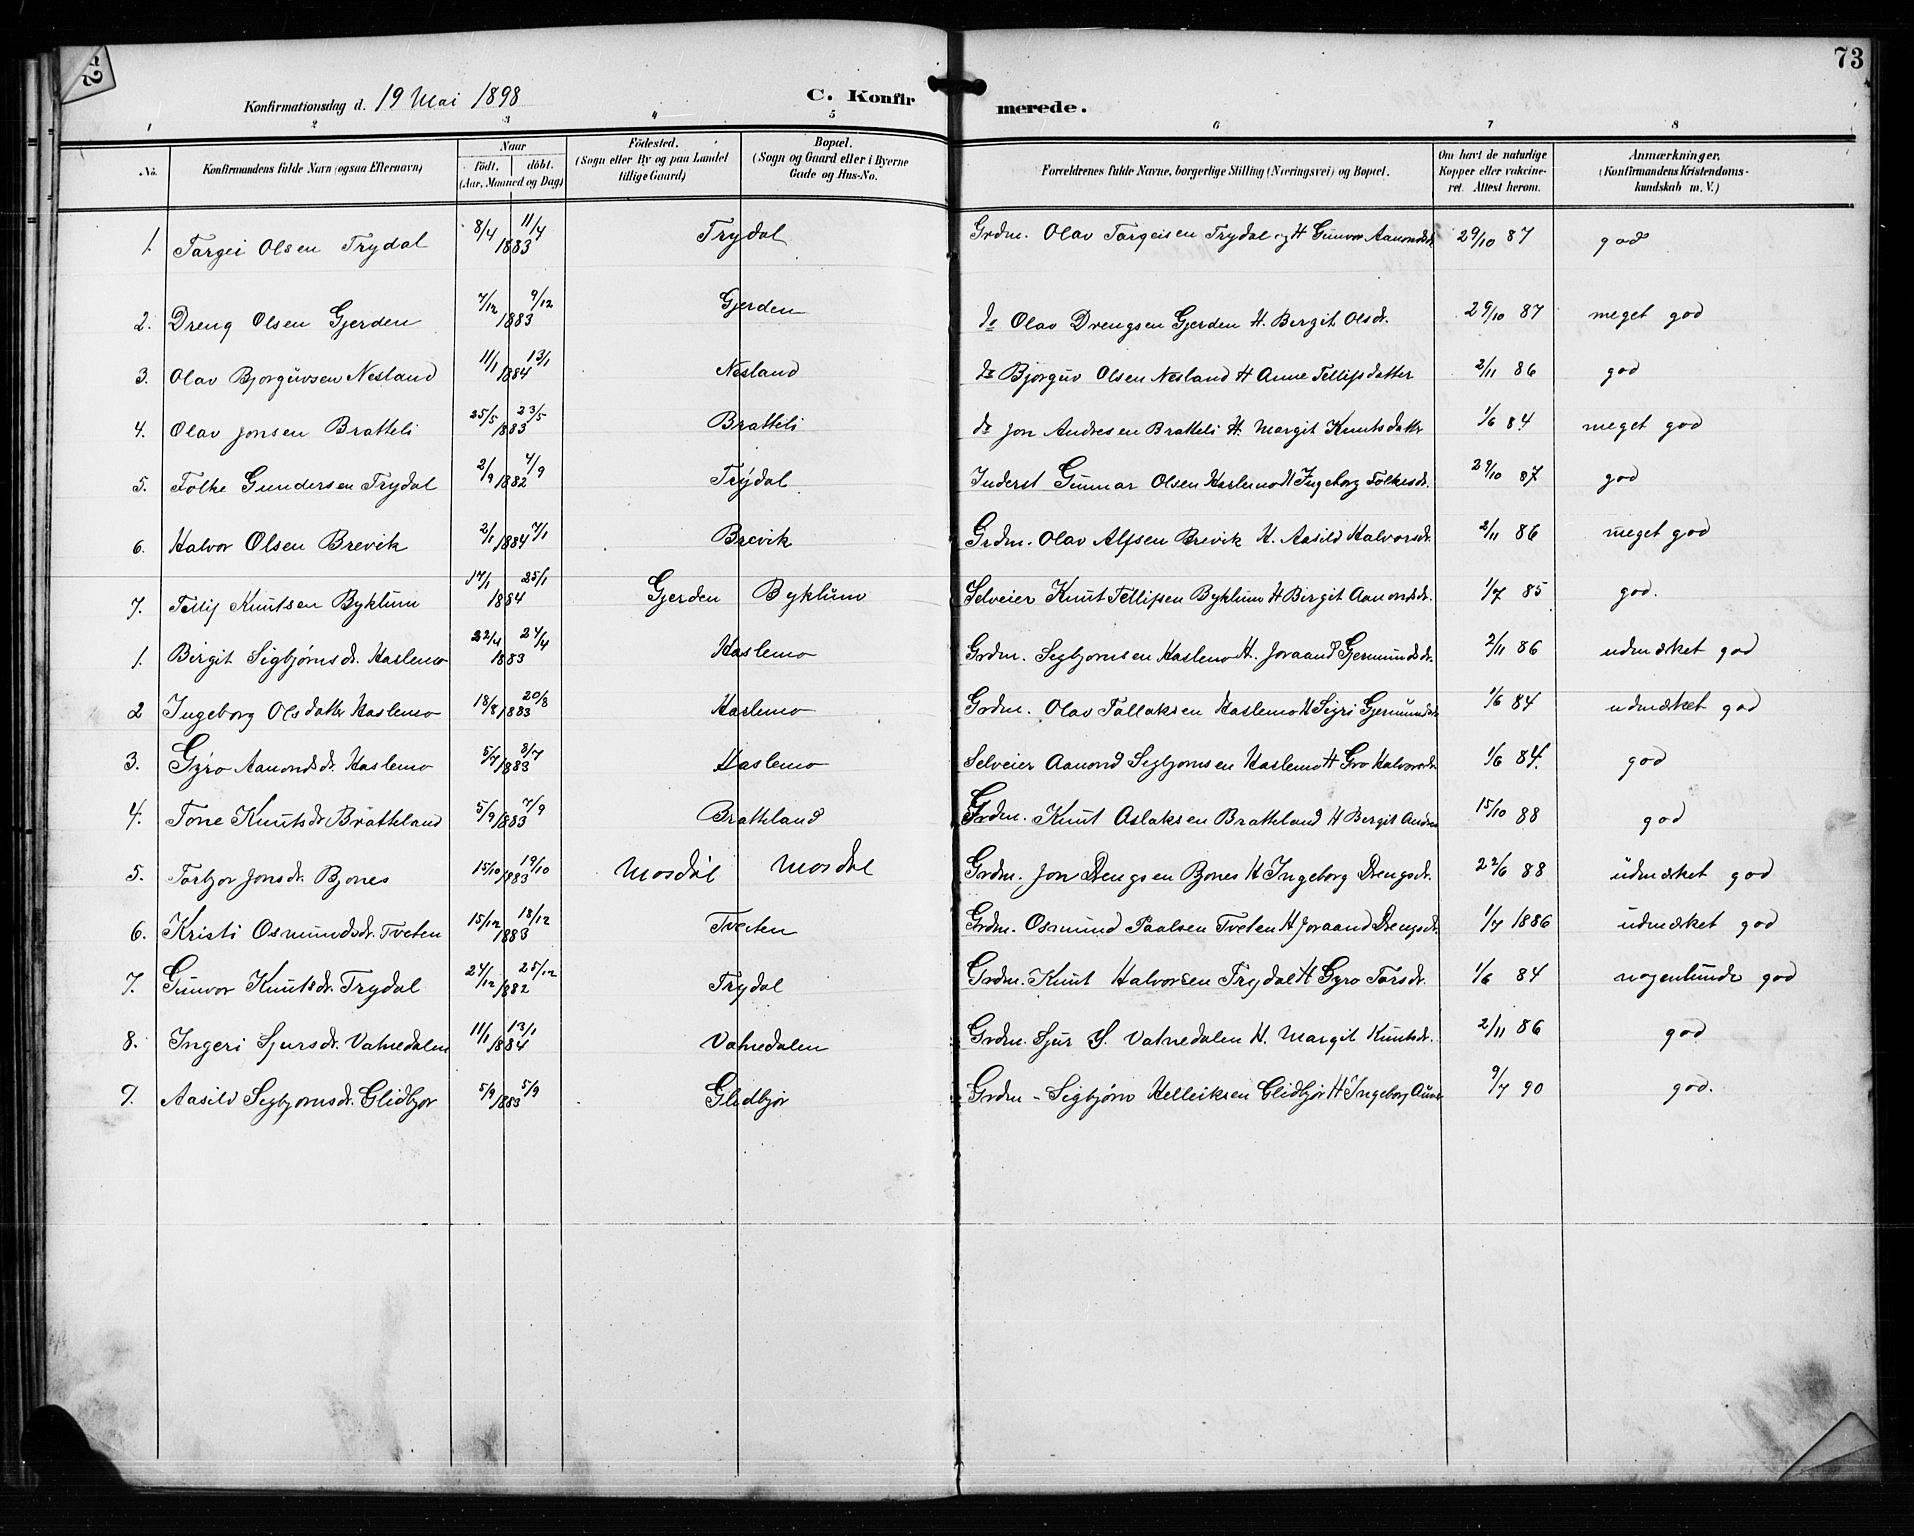 73
Konfirmationsdag d. 19 Mai 1898 C. Konfirmerede.
1 2 3 4 5 6 7 8
No. Konfirmandens fulde Navn (ogsaa Efternavn) Naar födt. döbt. (Aar, Maaned og Dag) Födested. (Sogn eller By og paa Landet tillige Gaard) Bopæl. (Sogn og Gaard eller i Byerne Gade og Hus-No. Forældrenes fulde Navne, borgerlige Stilling (Næringsvei) og Bopæl. Om havt de naturlige Kopper eller vakcineret. Attest herom. Anmærkninger. (Konfirmandens Kristendomskundskab m. V.)
1. Targei Olsen Trydal 8/4 11/4 1883 Trydal Grdm. Olav Targeisen Trydal og H Gunvor Aanondsdr. 29/10 87 god
2. Dreng Olsen Gjerden 7/12 9/12 1883 Gjerden do Olav Drengsen Gjerden H. Birgit Olsdr. 29/10 87 meget god
3. Olav Bjorguvsen Nesland 11/1 13/1 1884 Nesland do Bjorguv Olsen Nesland H Anne Tellifsdatter 2/11 86 god
4. Olav Jonsen Bratteli 25/5 23/5 1883 Bratteli do Jon Andresen Bratteli H. Margit Knutsdatter 1/6 84 meget god
5. Folke Gundersen Trydal 2/9 4/9 1882 Trydal Inderst Gunnar Olsen Haslemo H Ingeborg Folkesdr. 29/10 87 god
6. Halvor Olsen Brevik 2/1 7/1 1884 Brevik Grdm. Olav Alfsen Brevik H. Aasild Halvorsdr. 2/11 86 meget god
7. Tellif Knutsen Byklum 17/1 25/1 1884 Gjerden Byklum Selveier Knut Tellifsen Byklum H Birgit Aanondsdr. 1/7 85 god.
1. Birgit Sigbjørnsdr. Haslemo 22/4 24/4 1883 Haslemo Grdm. Sigbjørnsen Haslemo H. Joraand Gjermundsdr. 2/11 86 udmærket god
2 Ingeborg Olsdatter Haslemo 18/8 20/8 1883 Haslemo Grdm. Olav Tallaksen Haslemo H Sigri Gjermundsdr 1/6 84 udmærket god
3. Gyro Aanondsdr. Haslemo 5/7 8/7 1883 Haslemo Selveier Aanond Sigbjørnsen Haslemo H Gro Halvorsdr 1/6 84. god
4. Tone Knutsdr Bratteland 5/9 7/9 1883 Bratteland Grdm. Knut Aslaksen Bratteland H Bergit Andres 15/10 88 god
5. Torbjor Jonsdr. Bjones 15/10 19/10 1883 Mosdal Mosdal Grdm. Jon Drengsen Bjones H Ingeborg Drengsdr. 22/6 88 udmærket god
6. Kristi Osmundsdr. Tveten 15/12 18/12 1883 Tveiten Grdm. Osmund Paalsen Tveten H Joraand Drengsdr. 1/7 1886 udmærket god
7. Gunvor Knutsdr. Trydal 24/12 25/12 1882 Trydal Grdm. Knut Halvorsen Trydal H Gyro Torsdr. 1/6 84 nogenlunde god
8. Ingeri Sjursdr. Vatnedalen 11/1 13/1 1884 Vatnedalen Grdm. Sjur S. Vatnedalen H. Margit Knutsdr. 2/11 86 god
9. Aasild Sigbjornsdr. Glidbjor 5/9 5/9 1883 Glidbjor Grdm - Sigbjørn Helleiksen Glidbjor H Ingeborg 9/7 90 god.